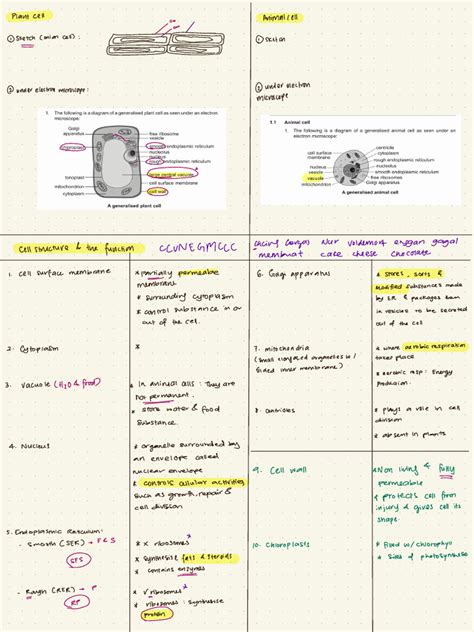 Plant cell
① Sketch (onion cell) :
② under electron microscope :
1. The following is a diagram of a generalised plant cell as seen under an electron
microscope:
Golgi
apparatus
chloroplast
tonoplast
mitochondrion
cytoplasm
free ribosome
vesicle
smooth endoplasmic reticulum
nucleolus
nucleus
rough endoplasmic reticulum
large central vacuole
cell surface membrane
cell wall
A generalised plant cell
Animal cell
① Sketch
② under electron
microscope
1.1 Animal cell
1. The following is a diagram of a generalised animal cell as seen under an electron
microscope:
cell surface
membrane
nucleolus
nucleus
vesicle
vacuole
mitochondrion
centriole
cytoplasm
rough endoplasmic reticulum
smooth endoplasmic reticulum
free ribosomes
Golgi apparatus
A generalised animal cell
Cell structure & the function
CCVNEGMCCC
1. Cell surface membrane
* partially permeable
membrane
* surrounding cytoplasm
* control substance in or
out of the cell.
2. Cytoplasm
3. Vacuole (H₂O & food)
* In animal cells : They are
not permanent.
* store water & food
substance.
4. Nucleus
* organelle surrounded by
an envelope called
nuclear envelope
* controls cellular activities
such as growth, repair &
cell division
- Smooth (SER) → F & S
SFS
* x ribosomes
* synthesize fats & steroids
* contains enzymes
- Rough (RER) → P
RP
* √ ribosomes
* ribosomes : synthesise
protein
cacing Ner voldemort
membuat cake cheese chocolate
6. Golgi apparatus
* stores, sorts &
modified substances made
by ER & packages them
in vesicles to be secreted
out of the cell
7. mitochondria
inner membrane)
* where aerobic respiration
takes place
* aerobic resp : Energy
Production.
8. centrioles
* plays a role in cell
division
* absent in plants
9. Cell wall
* Non living & fully
permeable
* protects cell from
injury & gives cell its
shape.
10. Chloroplasts
* sites of photosynthesis